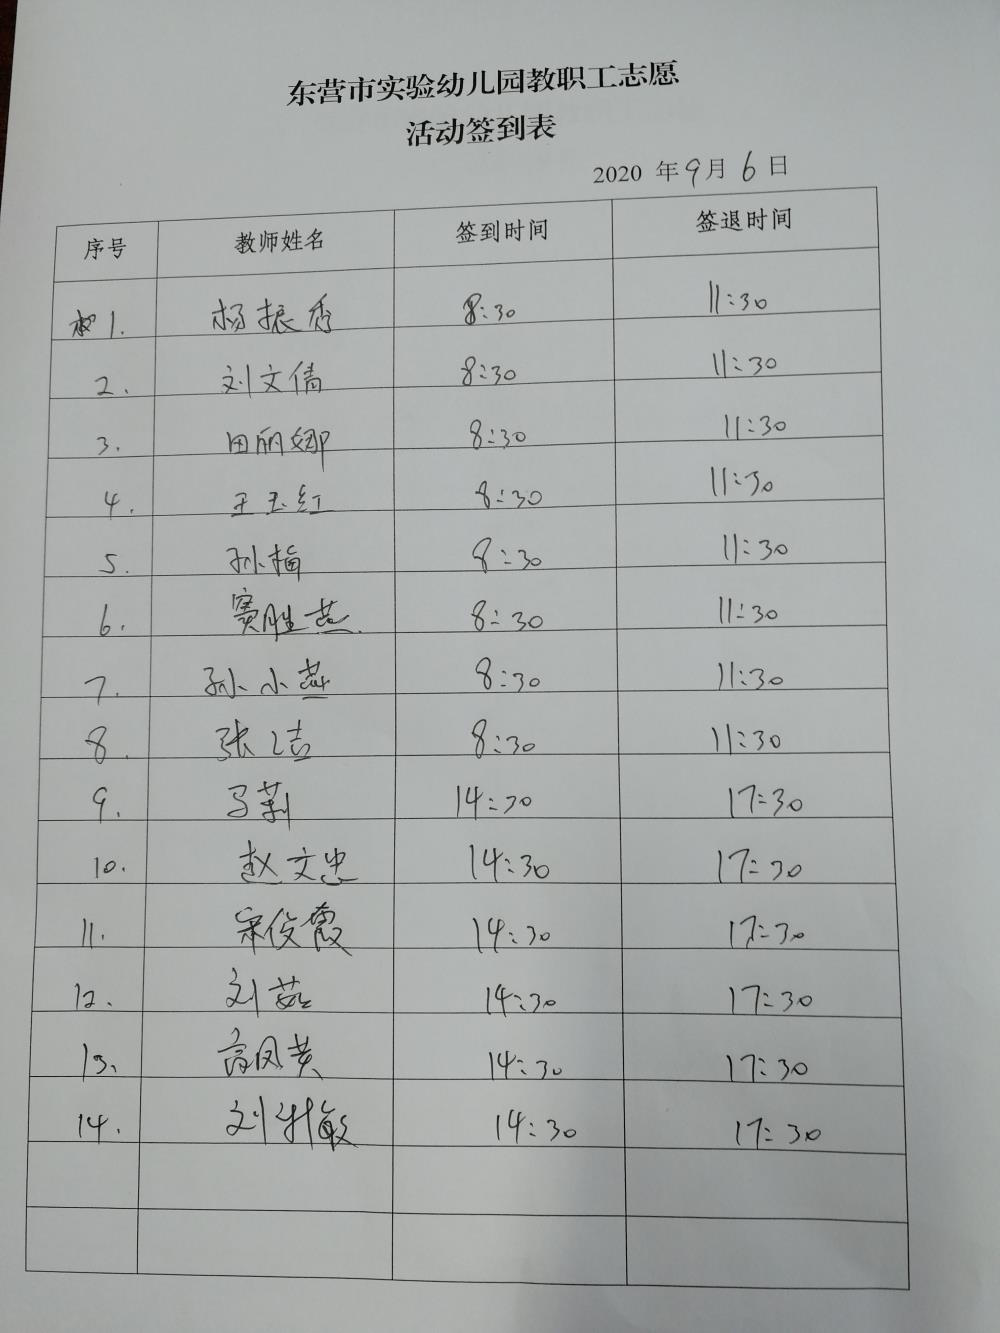 东营市实验幼儿园教职工志愿
活动签到表
2020 年 9 月 6 日
序号 教师姓名 签到时间 签退时间
1. 杨振秀 8:30 11:30
2. 刘文倩 8:30 11:30
3. 田丽娜 8:30 11:30
4. 王玉红 8:30 11:30
5. 孙梅 8:30 11:30
6. 賽胜燕 8:30 11:30
7. 孙小燕 8:30 11:30
8. 张洁 8:30 11:30
9. 马莉 14:30 17:30
10. 赵文忠 14:30 17:30
11. 宋俊霞 14:30 17:30
12. 刘茹 14:30 17:30
13. 高凤英 14:30 17:30
14. 刘敏 14:30 17:30